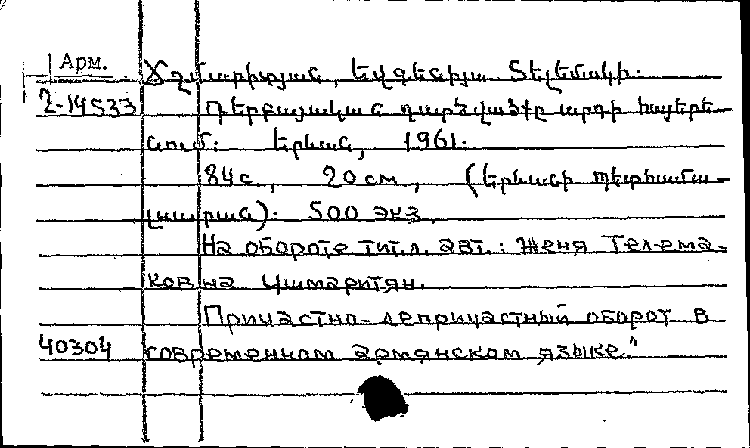 Арм.
Ճշմարիտյան, Եվգենիյա Տելեմակի.
2-14533 Դերբայական դարձվածը արդի հայերե-
նում: Երևան, 1961.
84с., 20см, (Երևանի պետհամա-
լսարան). 500 экз.
На обороте тит.л. авт.: Женя Телема-
ковна Чшмаритян.
Причастно-депричастный оборот в
40304 современном армянском языке."